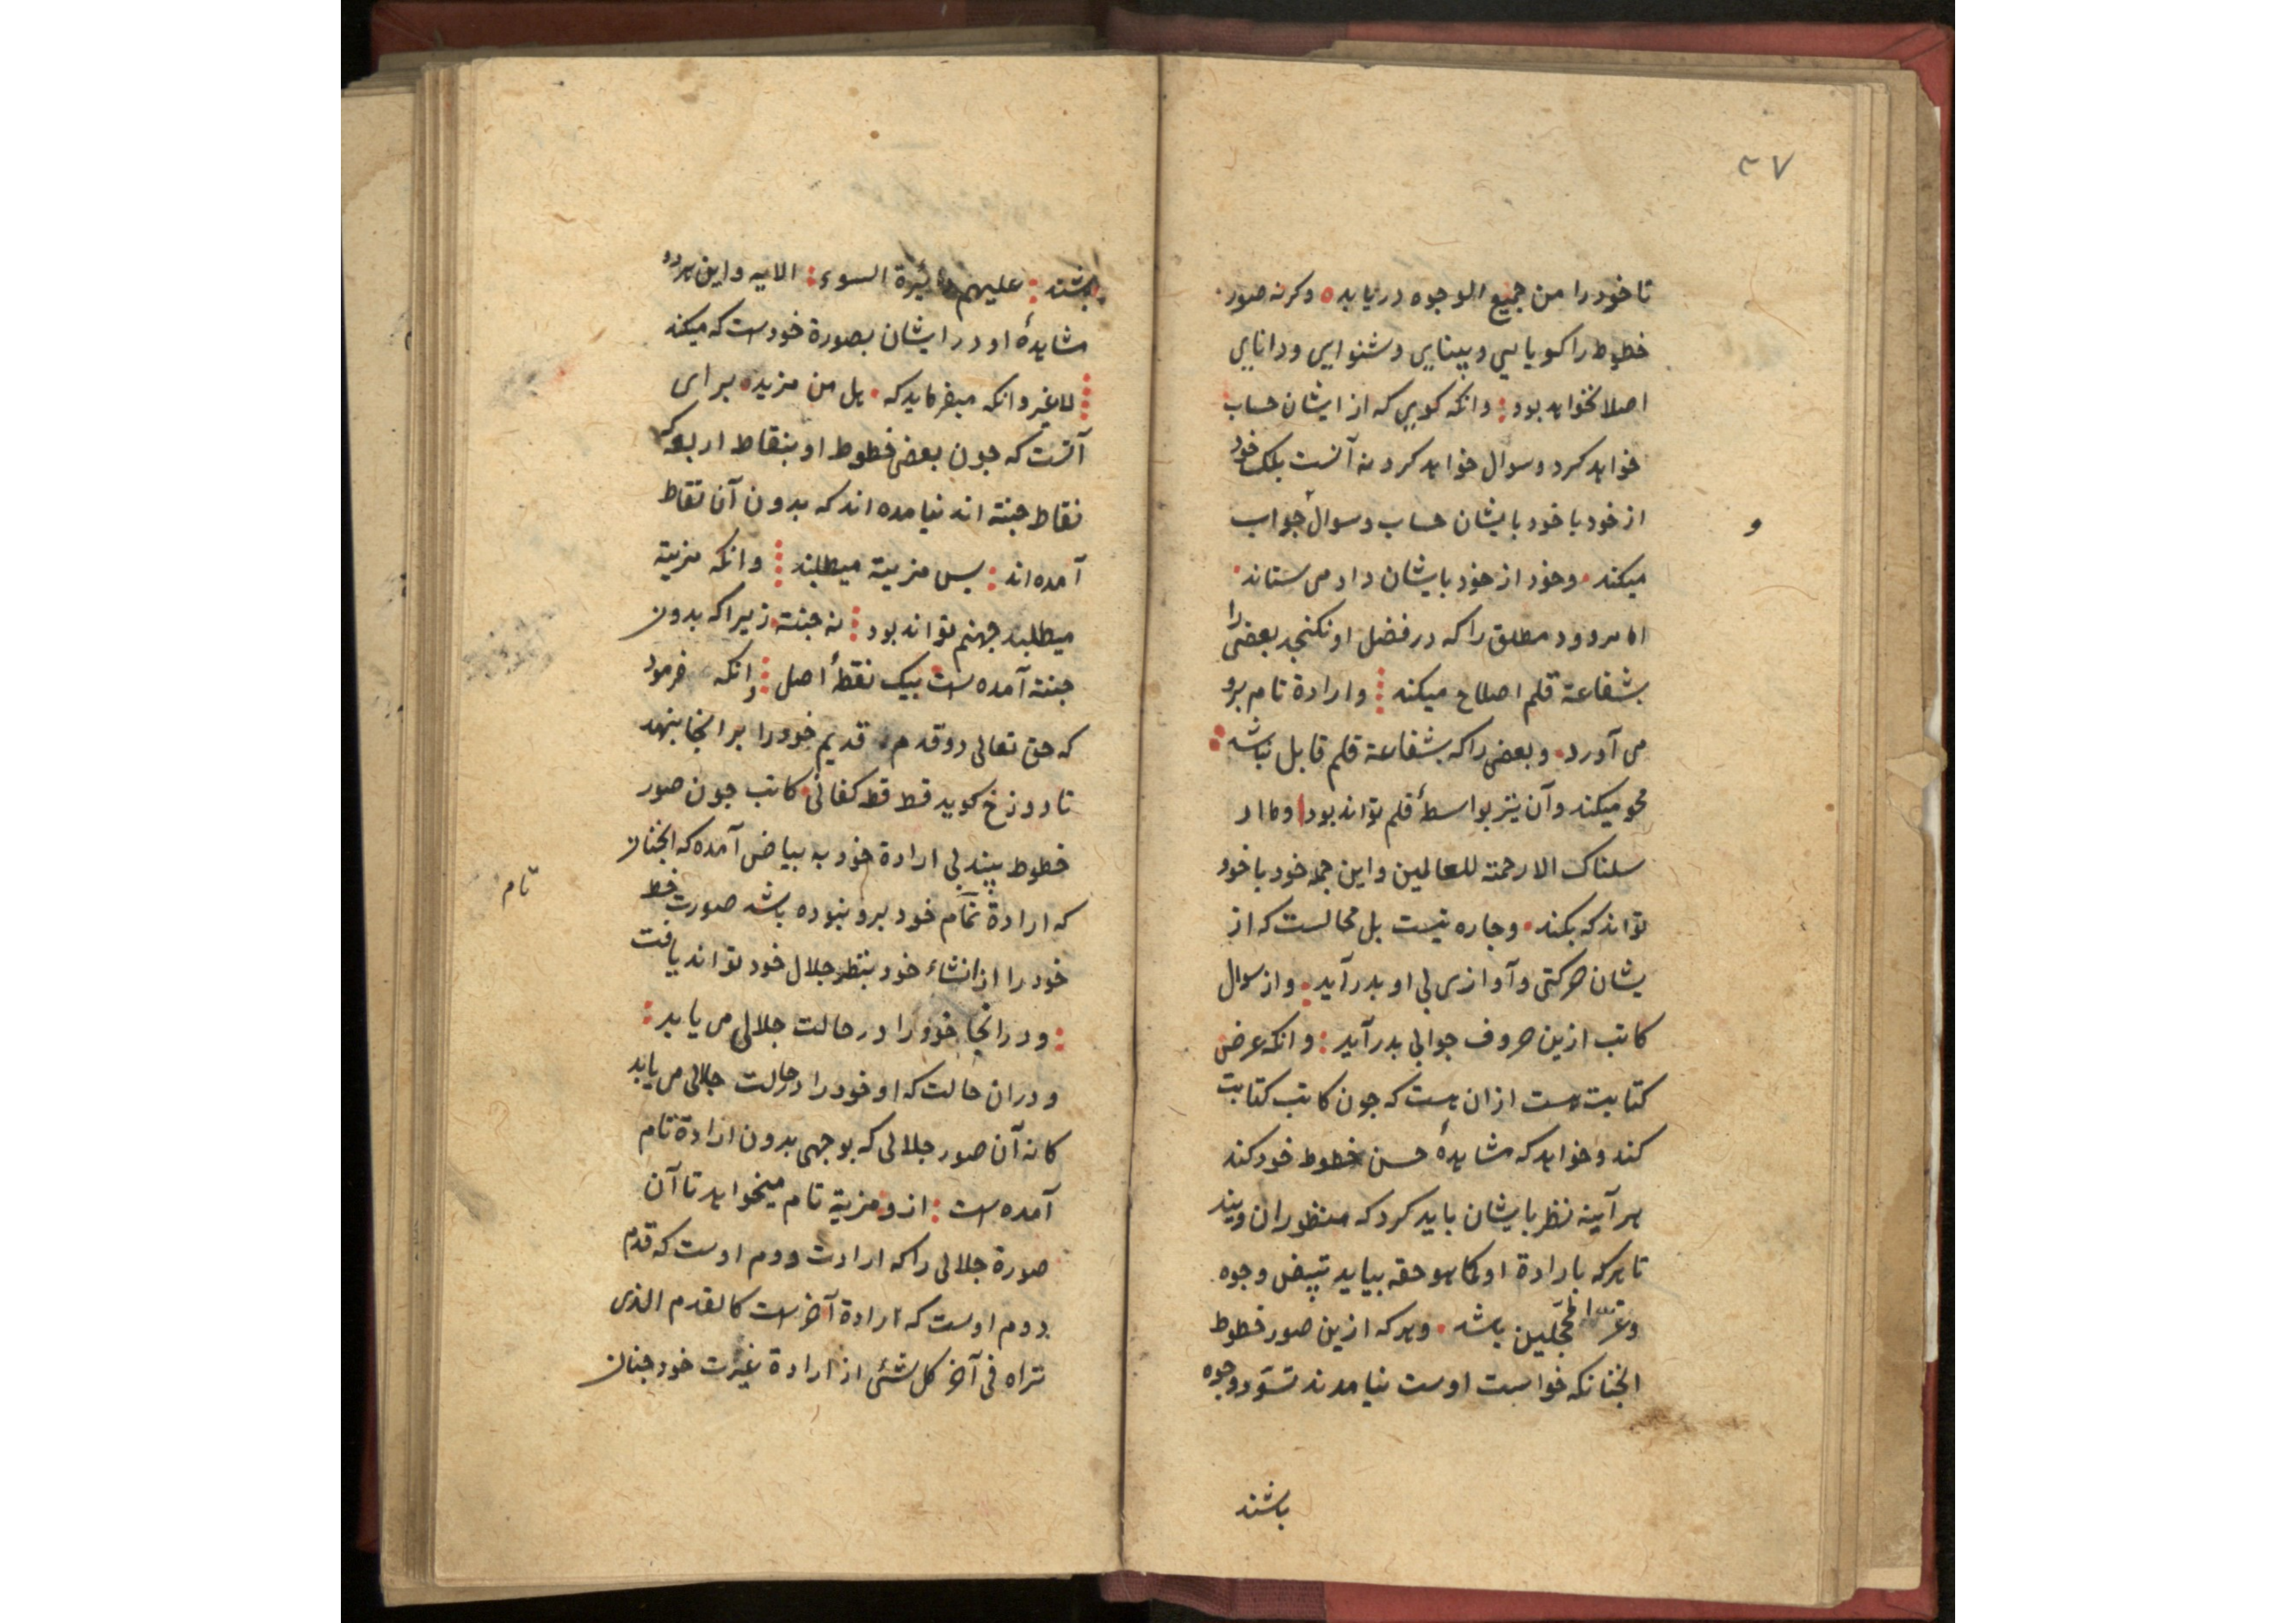 ۳۷
تا خود را من جمیع الوجوه دریابد ○ وکرنه صور
خطوط را کویایی و بینایی و شنوایی و دانایی
اصلا نخواهد بود : وانکه کویی که از ایشان حساب
خواهد کرد و سوال خواهد کرد نه آنست بلک خود
از خود با خود بایشان حساب و سوال جواب
و
میکند • وخود از خود بایشان داد می ستاند •
اما مردود مطلق را که در فضل او نکنجد بعضی را
بشفاعة قلم اصلاح میکند ⁝ وارادة تام برو
می آورد • و بعضی را که بشفاعة قلم قابل نباشد :
محو میکند وآن نیز بواسطهٔ قلم تواند بود وما ار
سلناک الا رحمة للعالمین واین جمله خود با خود
تواند که بکند • و چاره نیست بل محالست که از
یشان حرکتی وآوازی بی او بدر آید : و از سوال
کاتب ازین حروف جوابی بدر آید : وانکه عرض
کتابت هست ازان هست که جون کاتب کتابت
کند وخواهد که مشاهدهٔ حسن خطوط خود کند
هر آینه نظر بایشان باید کرد که منظوران ویند
تا هرکه بارادة او کما هو حقه بیاید تبیض وجوه
وغرا محجلین باشد • وهرکه ازین صور خطوط
انچنانکه خواست اوست نیامدند تسود وجوه
باشند
باشند : علیهم دائرة السوء : الایه واین هردو
مشاهدهٔ او در ایشان بصورة خودست که میکند
لاغیر وانکه میفرماید که • هل من مزید • برای
آنست که جون بعضی خطوط او بنقاط اربعه که
نقاط جنة اند نیامده اند که بدون آن نقاط
آمده اند : پس مزیة میطلبند ⁝ وانکه مزیة
میطلبد جهنم تواند بود ⁝ نه جنة • زیراکه بدون
جنة آمده است بیک نقطهٔ اصل ⁝ وانکه فرمود
که حق تعالی دو قدم • قدیم خود را بر انجا بنهد
تا دوزخ کوید قط قط کفانی • کاتب جون صور
خطوط بیند بی ارادة خود به بیاض آمده که انچنان
تام
که ارادة تمام خود برو نبوده باشد صورت خط
خود را از انشاء خود بنظر جلال خود تواند یافت
: و در انجا خود را در حالت جلالی می یابد :
و دران حالت که او خود را در حالت جلالی می یابد
کانه آن صور جلالی که بوجهی بدون ارادة تام
آمده است : از و مزیة تام میخواهد تا آن
صورة جلالی را که ارادت دوم اوست که قدم
دوم اوست که ارادة آخر است کالقدم الذی
تراه فی آخر کل شئی از ارادة غیرت خود چنان